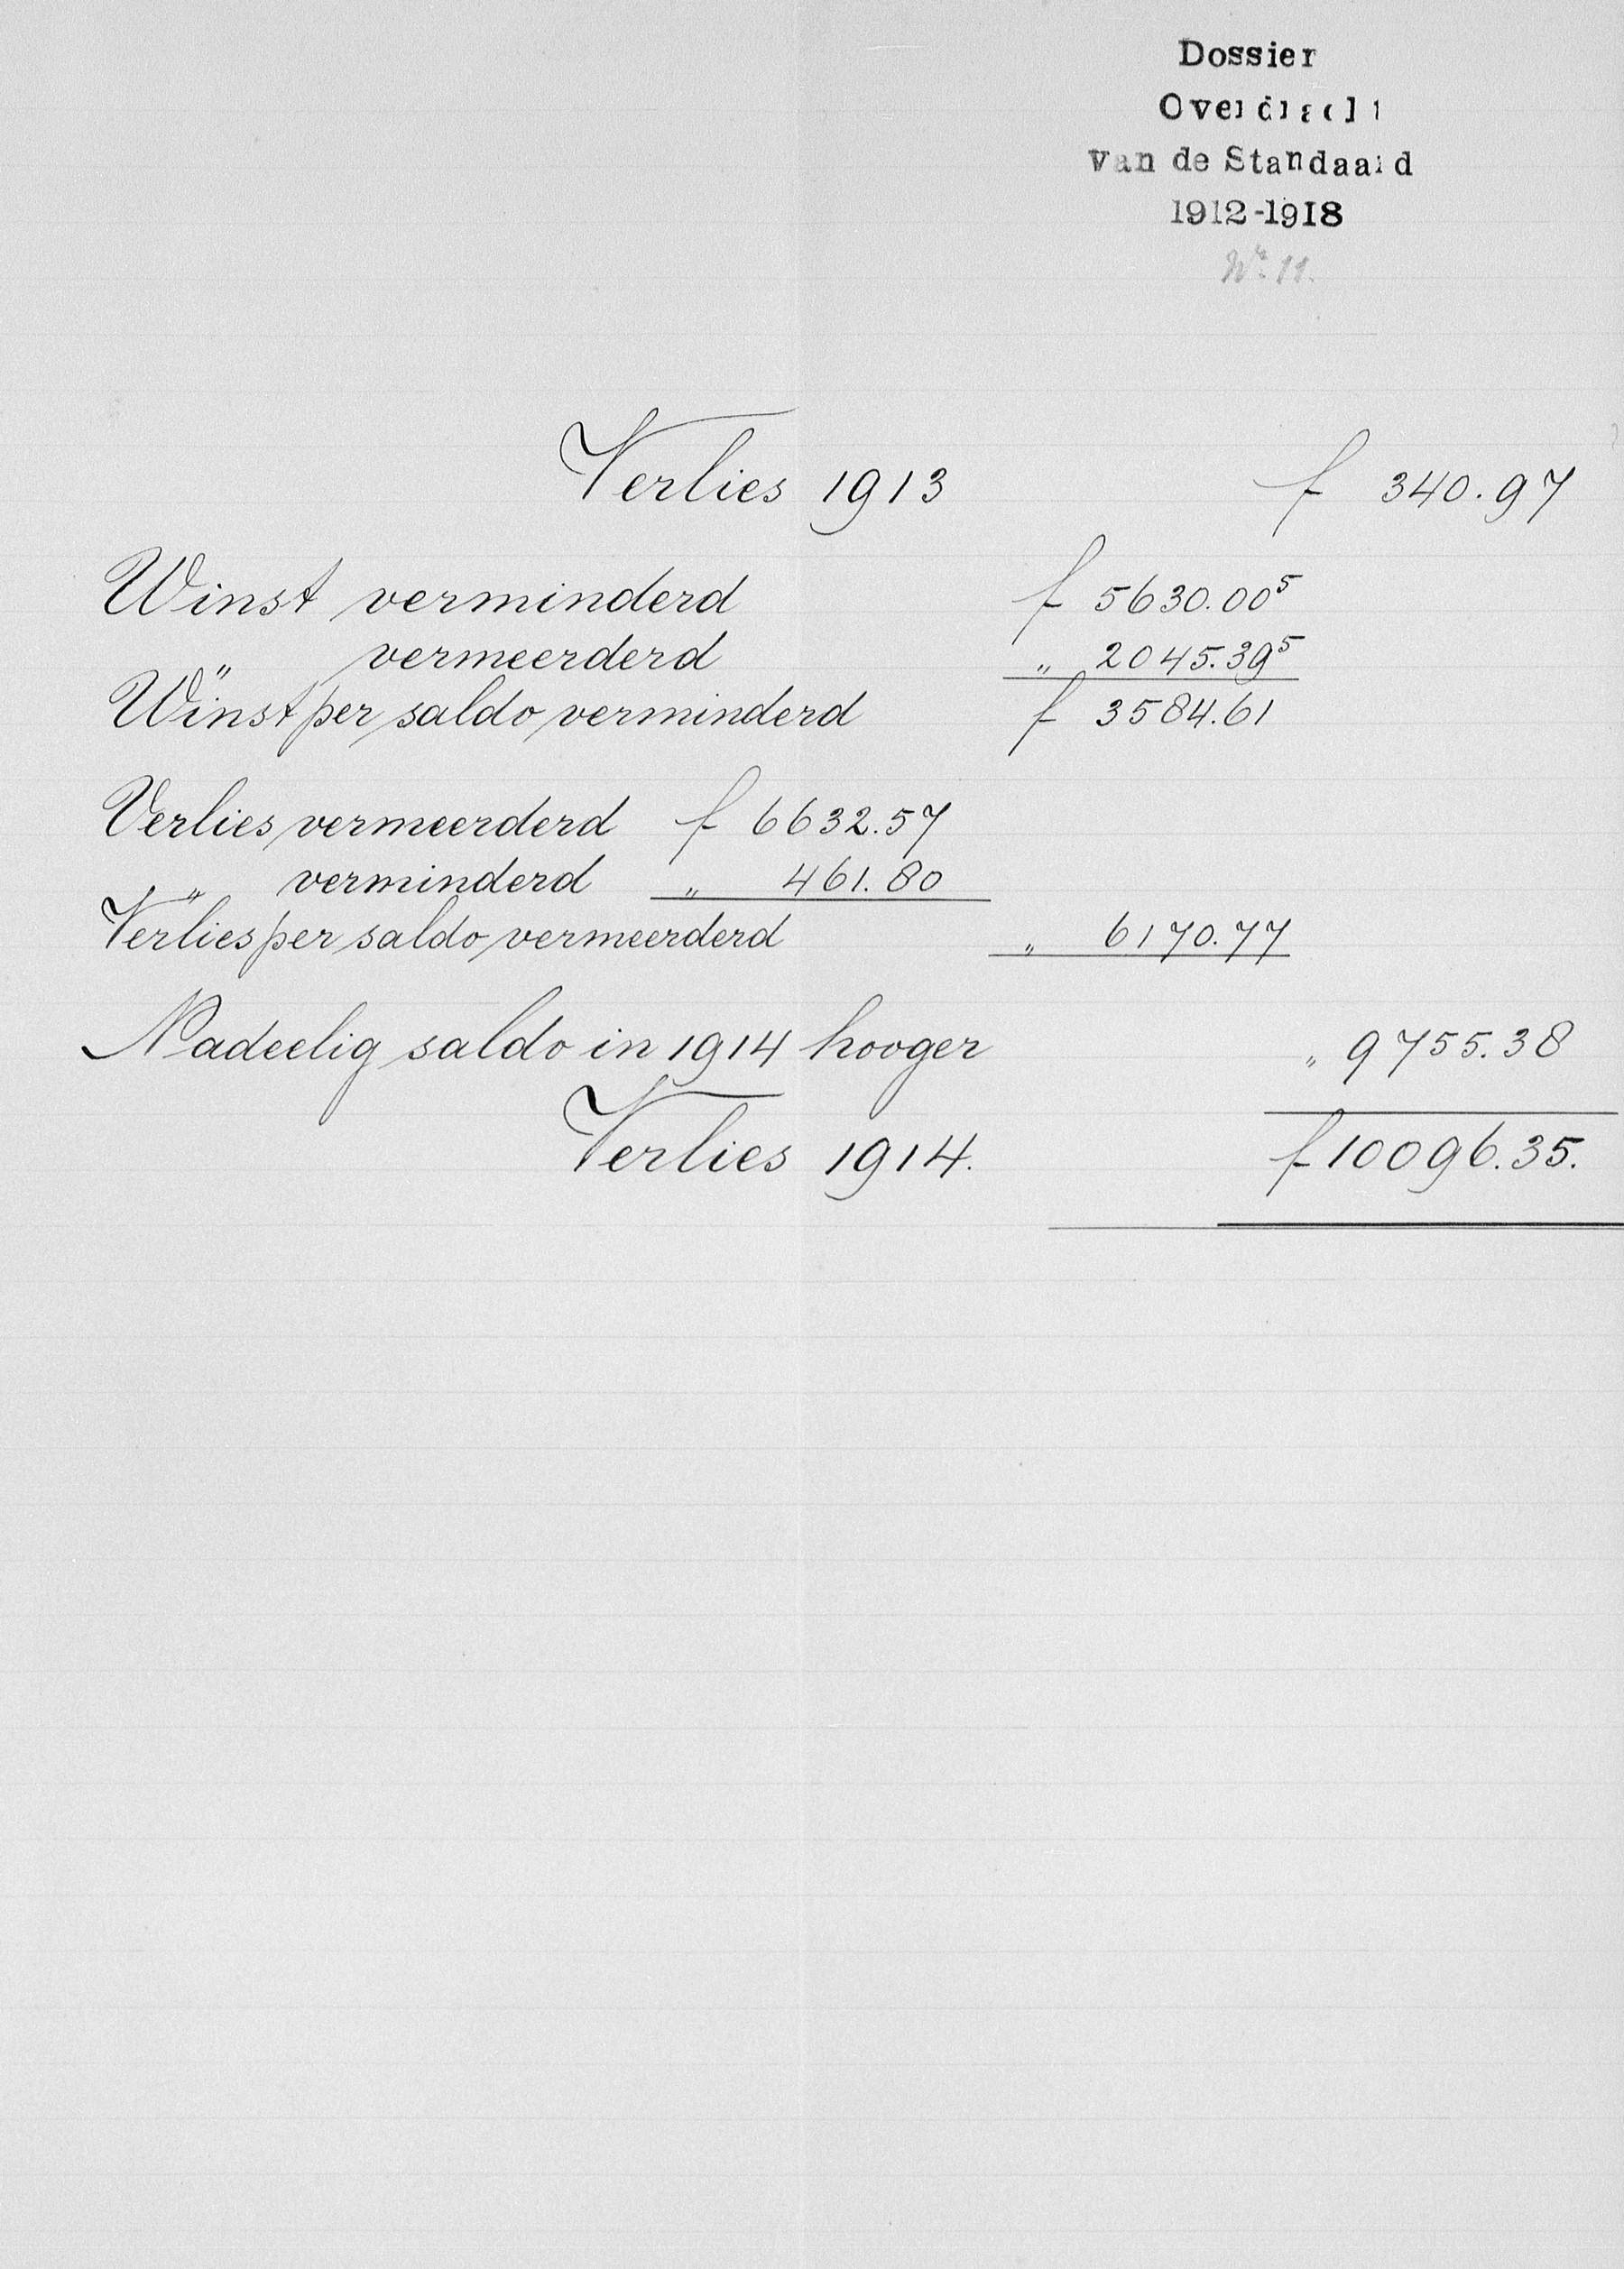 Dossier
Overdracht
van de Standaard
1912-1918
No. 11.
Verlies 1913 f 340.97
Winst verminderd f 5630.00⁵
" vermeerderd " 2045.39⁵
Winst per saldo verminderd f 3584.61
Verlies vermeerderd f 6632.57
" verminderd " 461.80
Verlies per saldo vermeerderd " 6170.77
Nadeelig saldo in 1914 hooger " 9755.38
Verlies 1914. f 10096.35.